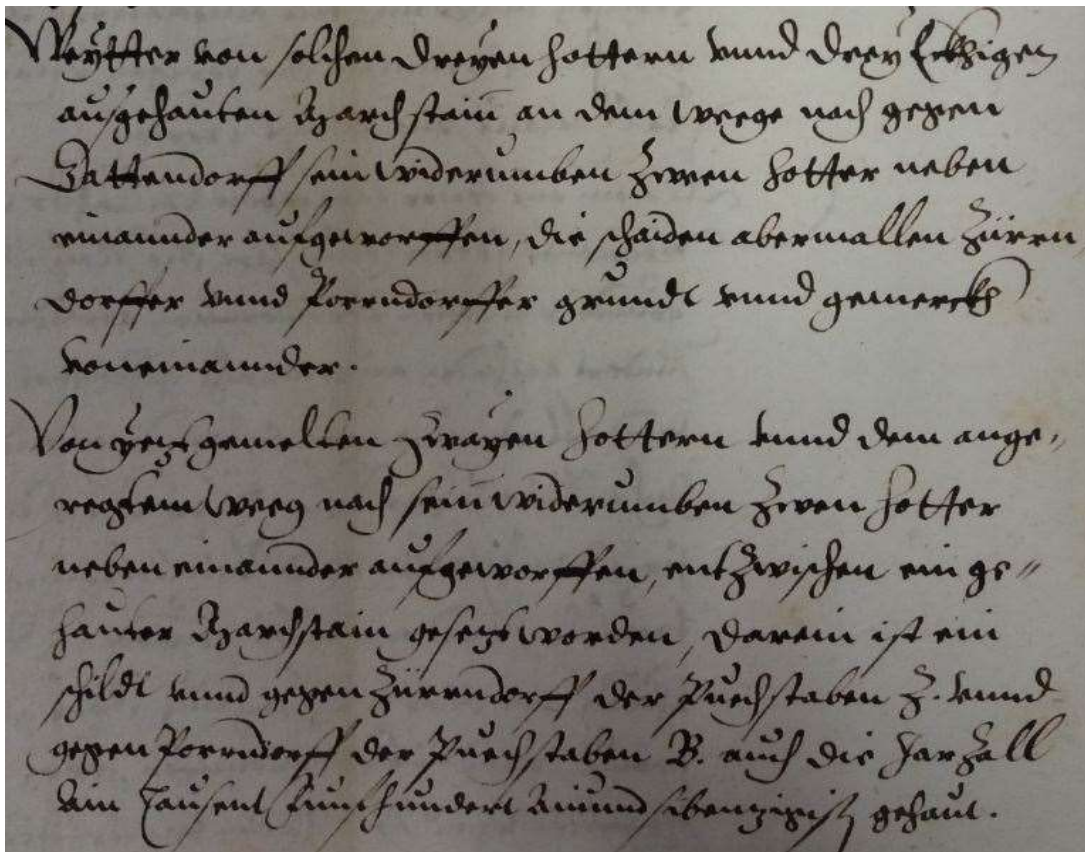 Weytter von solchen dreyen hottern vnnd drey Eckhigen
ausgehauten Marchstain an dem weege nach gegen
Gattendorff sein widerumben zween hotter neben
einannder aufgeworffen, die schaiden abermallen Zürrn
dorffer vnnd Porrndorffer grundt vnnd gemerckh
voneinannder.
Von yeztgemelten zwayen hottern vnnd dem ange„
regtem weeg nach sein widerumben zween hotter
neben einannder aufgeworffen, entzwischen ein ge„
hauter Marchstain gesezt worden, darein ist ein
schildt vnnd gegen Zürrndorff der Puechstaben Z. vnnd
gegen Porrndorff der Puechstaben B. auch die Jarzall
Ain Tausent Funfhundert Ainundsibenzigist gehaut.